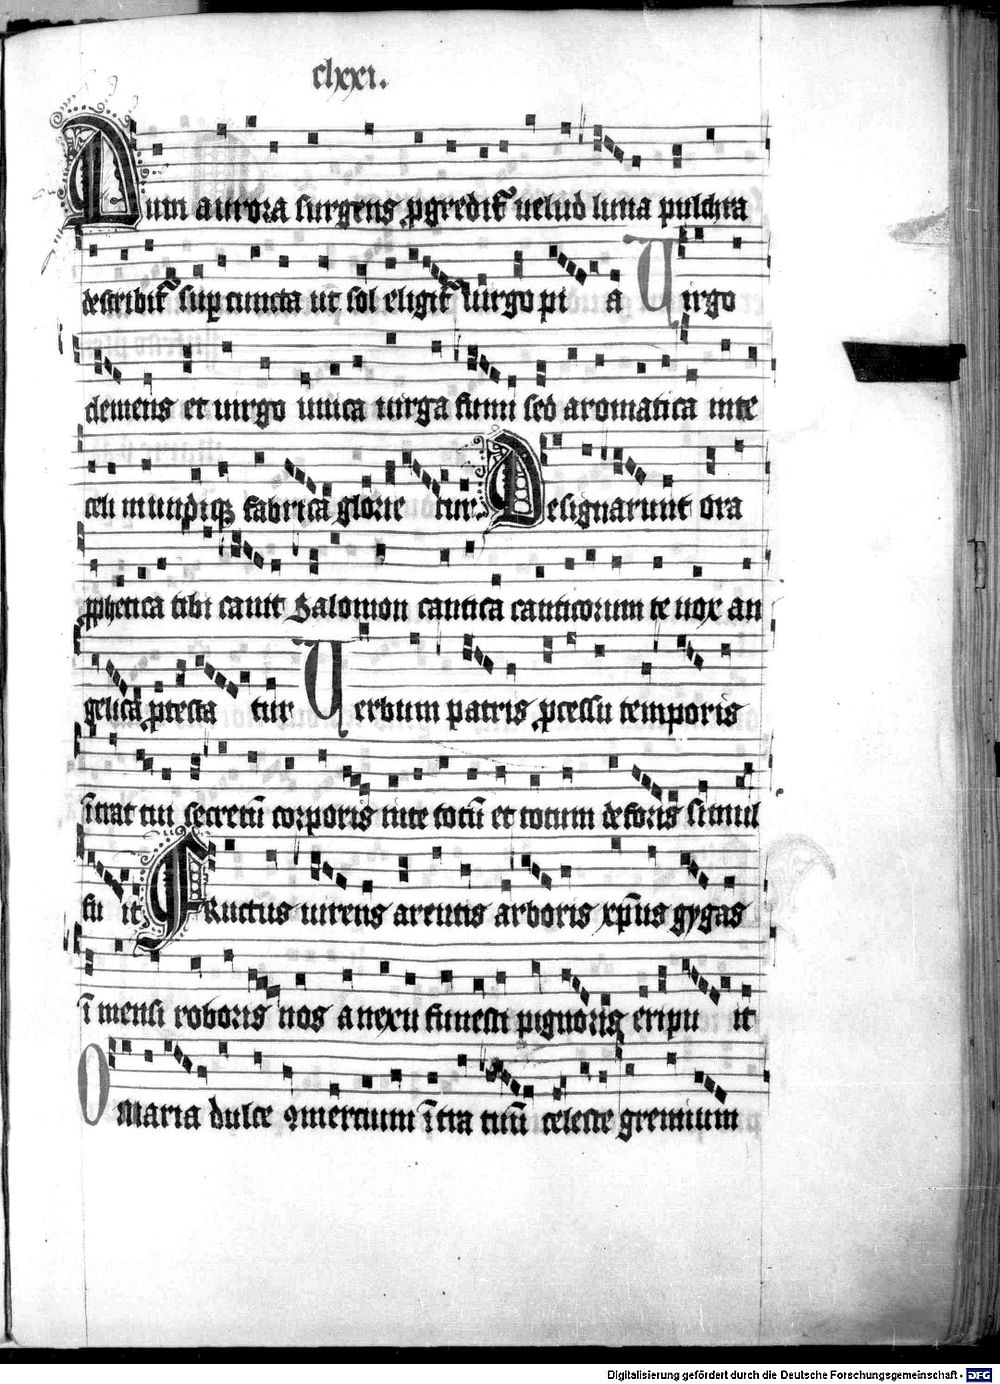 clxxi.
Cum aurora surgens ꝓgredit᷑ uelud luna pulchra
describit᷑ suꝑ cuncta ut sol eligit᷑ uirgo pi a Uirgo
clemens et uirgo unica uirga fumi sed aromatica in te
celi mundiqꝫ fabrica glorie tur. Designarunt ora
ꝓphetica tibi canit Salomon cantica canticorum te uox an
gelica ꝓtesta tur Uerbum patris ꝓcessu temporis
ītrat tui secretū corporis in te totū et totum deforis simul
fu it Fructus uirens arentis arboris xp̄us gygas
īmensi roboris nos a nexu funesti pignoris eripu it
O maria dulce ꝯmercium ītra tuū celeste gremium
Digitalisierung gefördert durch die Deutsche Forschungsgemeinschaft - DFG